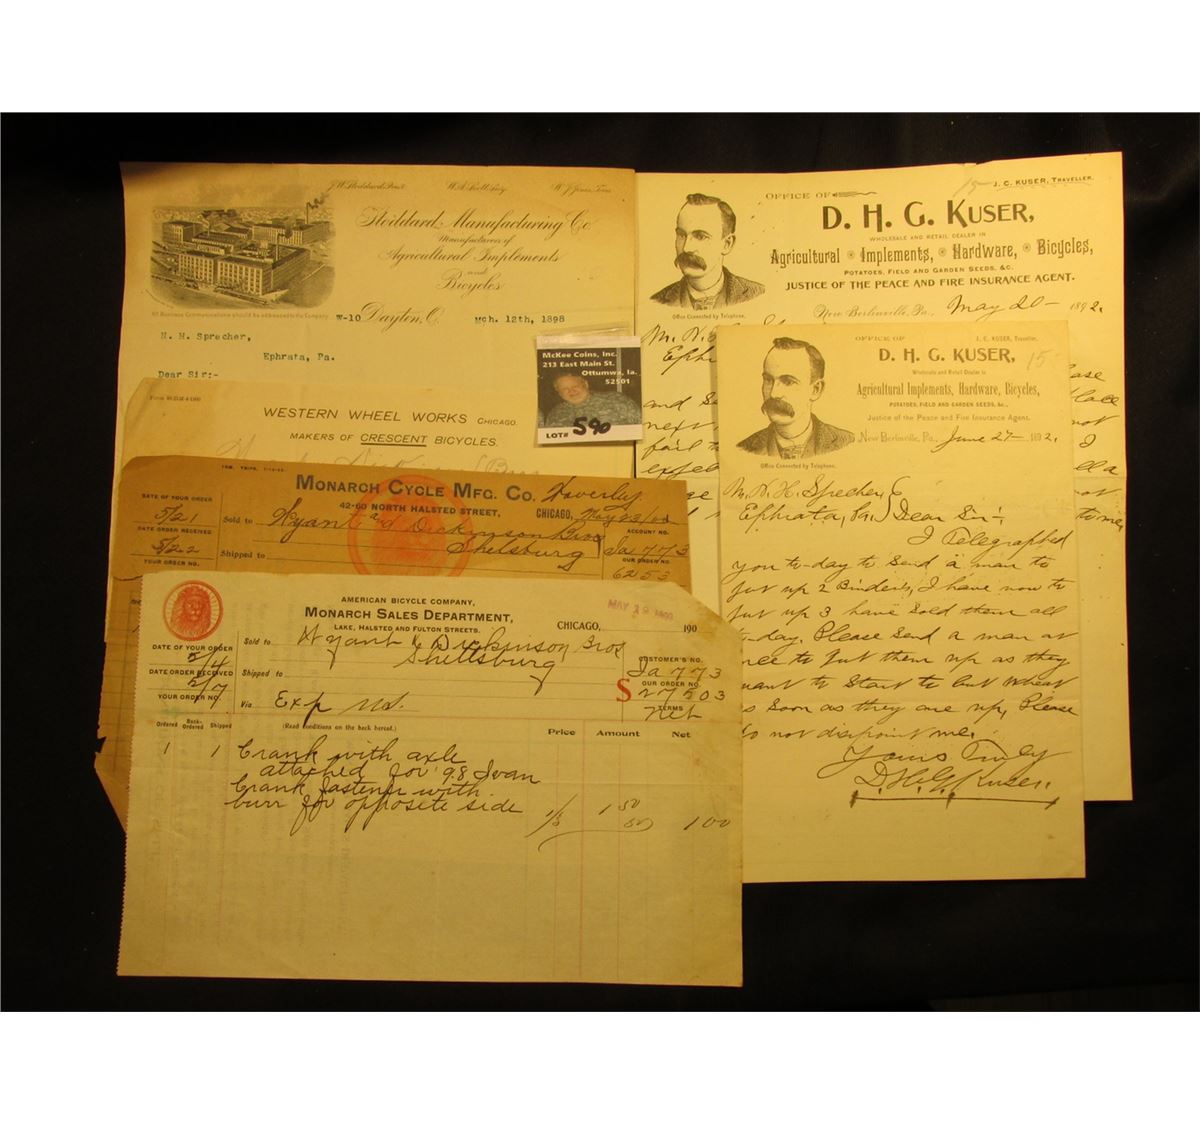 J. W. Stoddard, Prest. W. A. Scott, Secy. W. J. Jones, Treas.
Stoddard Manufacturing Co.
Manufacturers of
Agricultural Implements
and
Bicycles
All Business Communications should be addressed to the Company
W-10 Dayton, O. Mch. 12th, 1898
H. H. Sprecher,
Ephrata, Pa.
Dear Sir:-
WESTERN WHEEL WORKS CHICAGO.
MAKERS OF CRESCENT BICYCLES.
MONARCH CYCLE MFG. CO. Waverley
42-60 NORTH HALSTED STREET,
CHICAGO, May 23/00
DATE OF YOUR ORDER
5/21
DATE ORDER RECEIVED
5/22
YOUR ORDER NO.
Sold to Wyant and Dickinson Bros
Shipped to Shellsburg
ACCOUNT NO.
Ia 773
OUR ORDER NO.
6253
AMERICAN BICYCLE COMPANY,
MONARCH SALES DEPARTMENT,
LAKE, HALSTED AND FULTON STREETS.
CHICAGO, 190
MAY 19 1900
DATE OF YOUR ORDER
5/4
DATE ORDER RECEIVED
5/7
YOUR ORDER NO.
Sold to Wyant & Dickinson Bros
Shipped to Shellsburg
Via Exp
CUSTOMER'S NO.
Ia 773
OUR ORDER NO.
S 27503
TERMS
Net
Ordered Back-Ordered Shipped (Read conditions on the back hereof.) Price Amount Net
1 1 Crank with axle
attached for '98 Ivan
Crank fastener with
burr for opposite side 1 50
50 1 00
McKee Coins, Inc.
213 East Main St.
Ottumwa, Ia.
52501
LOT# 590
15 J. C. KUSER, TRAVELLER.
OFFICE OF
D. H. G. KUSER,
WHOLESALE AND RETAIL DEALER IN
Agricultural Implements, Hardware, Bicycles,
POTATOES, FIELD AND GARDEN SEEDS, &C.
JUSTICE OF THE PEACE AND FIRE INSURANCE AGENT.
Office Connected by Telephone.
New Berlinville, Pa., May 20 1892
and
next
fail
OFFICE OF J. C. KUSER, Traveller.
D. H. G. KUSER, 15
Wholesale and Retail Dealer in
Agricultural Implements, Hardware, Bicycles,
POTATOES, FIELD AND GARDEN SEEDS, &c.,
Justice of the Peace and Fire Insurance Agent.
Office Connected by Telephone.
New Berlinville, Pa., June 27 1892.
M. H. H. Sprecher
Ephrata, Pa. Dear Sir:
I Telegraphed
you to-day to send a man to
put up 2 Binders, I have now to
put up 3 have sold them all
to-day. Please send a man at
once to put them up as they
want to start to cut wheat
as soon as they are up, Please
do not disapoint me.
Yours Truly
D. H. G. Kuser.